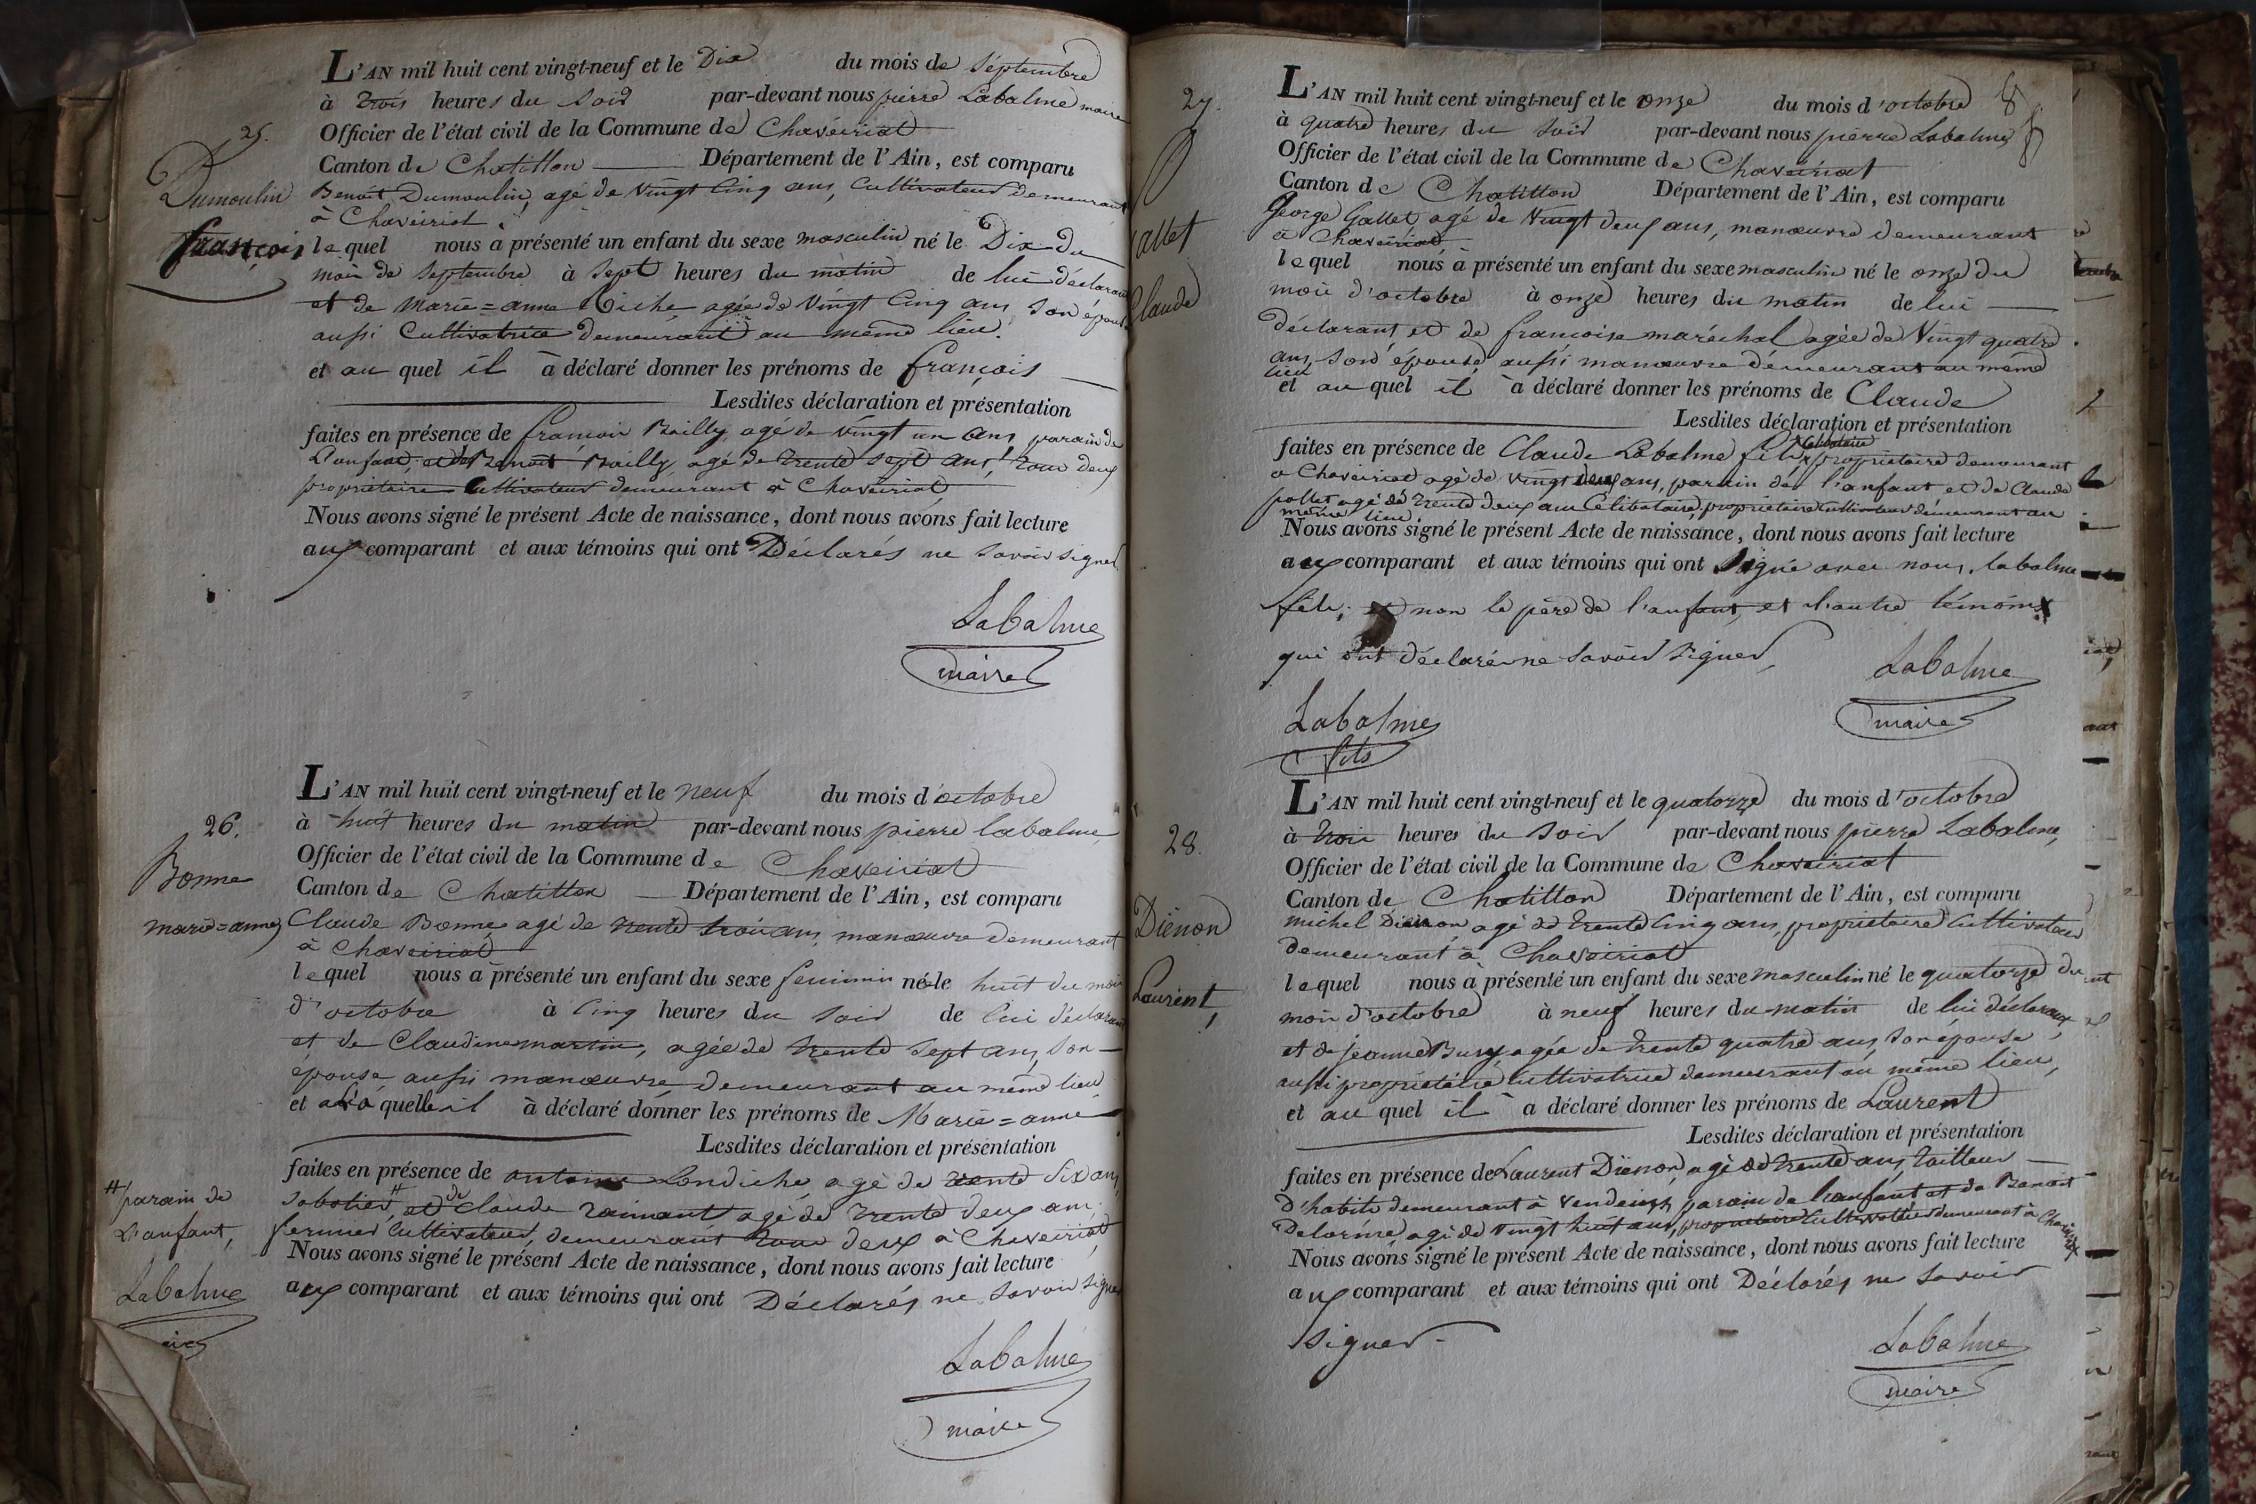 L'AN mil huit cent vingt-neuf et le Dix du mois de Séptembre
à trois heures du soir par-devant nous pierre Labalme maire
Officier de l'état civil de la Commune de Chaveiriat
25.
Canton de Chatillon Département de l'Ain, est comparu
Dumoulin
Benoit Dumoulin, agé de vingt cinq ans, cultivateur demeurant
à Chaveiriat
françois
lequel nous à présenté un enfant du sexe masculin né le Dix du
mois de Septembre à sept heures du matin de lui déclarant
et de Marie=anne agée de vingt cinq ans son épouse
aussi Cultivatrice demeurant au même lieu.
et au quel il à déclaré donner les prénoms de françois
Lesdites déclaration et présentation
faites en présence de françois Boilly, agé de vingt un ans parain de
L'anfant, et de Benoit Boilly, agé de trente sept ans, tous deux
propriétaire Cultivateur demeurant à Chaveiriat
Nous avons signé le présent Acte de naissance, dont nous avons fait lecture
aux comparant et aux témoins qui ont Déclarés ne savoir signer
Labalme
maire
L'AN mil huit cent vingt-neuf et le neuf du mois d'octobre
26.
à huit heures du matin par-devant nous pierre labalme
Officier de l'état civil de la Commune de Chaveiriat
Bonne
Canton de Chatillon Département de l'Ain, est comparu
marie=anne
Claude Bonne agé de trente trois ans, manœuvre demeurant
à Chaveiriat
lequel nous à présenté un enfant du sexe feminin né le huit du mois
d'octobre à cinq heures du soir de lui déclarant
et de Claudine martin, agée de trente sept ans, son
épouse aussi manœuvre demeurant au même lieu
et à la quelle il à déclaré donner les prénoms de Marie=anne
Lesdites déclaration et présentation
faites en présence de antoine Londiche agé de trente six ans,
sabotier, # et de Claude agé de trente deux ans,
fermier Cultivateur, demeurant tous deux à Chaveiriat
# parain de
L'anfant,
Labalme
Nous avons signé le présent Acte de naissance, dont nous avons fait lecture
aux comparant et aux témoins qui ont Déclarés ne savoir signer
Labalme
maire
8
27.
L'AN mil huit cent vingt-neuf et le onze du mois d'octobre
à quatre heures du soir par-devant nous pierre Labalme
Officier de l'état civil de la Commune de Chaveiriat
Canton de Chatillon Département de l'Ain, est comparu
Gallet
George Gallet, agé de vingt deux ans, manœuvre demeurant
à Chaveiriat
lequel nous à présenté un enfant du sexe masculin né le onze du
Claude
mois d'octobre à onze heures du matin de lui
déclarant et de françoise maréchal agée de vingt quatre
ans, son épouse, aussi manœuvre demeurant au même
lieu
et au quel il à déclaré donner les prénoms de Claude
Lesdites déclaration et présentation
faites en présence de Claude Labalme fils célibataire propriétaire demeurant
à Chaveiriat agé de vingt deux ans, parain de l'anfant et de Claude
pollet agé de trente deux ans Célibataire, propriétaire cultivateur demeurant au
même lieu
Nous avons signé le présent Acte de naissance, dont nous avons fait lecture
aux comparant et aux témoins qui ont signé avec nous, labalme
fils; et non le père de l'anfant, et l'autre témoins
qui ont déclarés ne savoir signer,
Labalme
maire
Labalme
fils
28.
L'AN mil huit cent vingt-neuf et le quatorze du mois d'octobre
à trois heures du soir par-devant nous pierre Labalme,
Officier de l'état civil de la Commune de Chaveiriat
Canton de Chatillon Département de l'Ain, est comparu
Diénon
michel Diénon, agé de trente cinq ans, propriétaire Cultivateur
demeurant à Chaveiriat
Laurent,
lequel nous à présenté un enfant du sexe masculin né le quatorze du
mois d'octobre à neuf heures du matin de lui déclarant
et de Jeanne Bury agée de trente quatre ans son épouse
aussi propriétaire Cultivatrice demeurant au même lieu,
et au quel il a déclaré donner les prénoms de Laurent
Lesdites déclaration et présentation
faites en présence de Laurent Diénon, agé de trente ans, tailleur
D'habits demeurant à parain de l'anfant et de Benoit
agé de vingt huit ans, propriétaire Cultivateur demeurant à
Nous avons signé le présent Acte de naissance, dont nous avons fait lecture
aux comparant et aux témoins qui ont Déclarés ne savoir
signer.
Labalme
maire